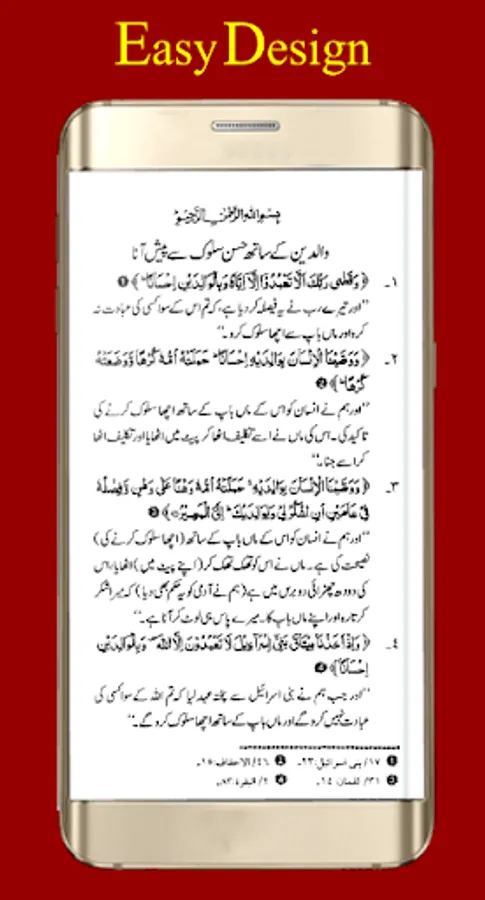 Easy Design
بسم الله الرحمن الرحيم
والدین کے ساتھ حسن سلوک سے پیش آنا
۱۔ ﴿وَقَضٰى رَبُّكَ اَلَّا تَعْبُدُوْٓا اِلَّآ اِيَّاهُ وَبِالْوَالِدَيْنِ اِحْسَانًا ؕ﴾ ❶
’’اور تیرے رب نے یہ فیصلہ کر دیا ہے، کہ تم اس کے سوا کسی کی عبادت نہ
کرو اور ماں باپ سے اچھا سلوک کرو۔‘‘
۲۔ ﴿وَوَصَّيْنَا الْاِنْسَانَ بِوَالِدَيْهِ اِحْسَانًا ؕ حَمَلَتْهُ اُمُّهٗ كُرْهًا وَّوَضَعَتْهُ
كُرْهًا ؕ﴾ ❷
’’اور ہم نے انسان کو اس کے ماں باپ کے ساتھ اچھا سلوک کرنے کی
تاکید کی۔ اس کی ماں نے اسے تکلیف اٹھا کر پیٹ میں اٹھایا اور تکلیف اٹھا
کر اسے جنا۔‘‘
۳۔ ﴿وَوَصَّيْنَا الْاِنْسَانَ بِوَالِدَيْهِ ۚ حَمَلَتْهُ اُمُّهٗ وَهْنًا عَلٰى وَهْنٍ وَّفِصٰلُهٗ
فِيْ عَامَيْنِ اَنِ اشْكُرْ لِيْ وَلِوَالِدَيْكَ ؕ اِلَيَّ الْمَصِيْرُ﴾ ❸
’’اور ہم نے انسان کو اس کے ماں باپ کے ساتھ (اچھا سلوک کرنے کی)
نصیحت کی ہے۔ ماں نے اس کو تھک تھک کر (اپنے پیٹ میں) اٹھایا، اس
کی دودھ چھڑائی دو برس میں ہے (ہم نے آدمی کو یہ حکم بھی دیا) کہ میرا شکر
کرتا رہ اور اپنے ماں باپ کا۔ میرے پاس ہی لوٹ کر آنا ہے۔‘‘
۴۔ ﴿وَاِذْ اَخَذْنَا مِيْثَاقَ بَنِيْٓ اِسْرَآءِيْلَ لَا تَعْبُدُوْنَ اِلَّا اللّٰهَ وَبِالْوَالِدَيْنِ
اِحْسَانًا﴾ ❹
’’اور جب ہم نے بنی اسرائیل سے پختہ عہد لیا کہ تم اللہ کے سوا کسی کی
عبادت نہیں کرو گے اور ماں باپ کے ساتھ اچھا سلوک کرو گے۔‘‘
❶ ۱۷/ بنی اسرائیل: ۲۳۔ ❷ ۴۶/ الاحقاف: ۱۵۔
❸ ۳۱/ لقمان: ۱۴۔ ❹ ۲/ البقرة: ۸۳۔